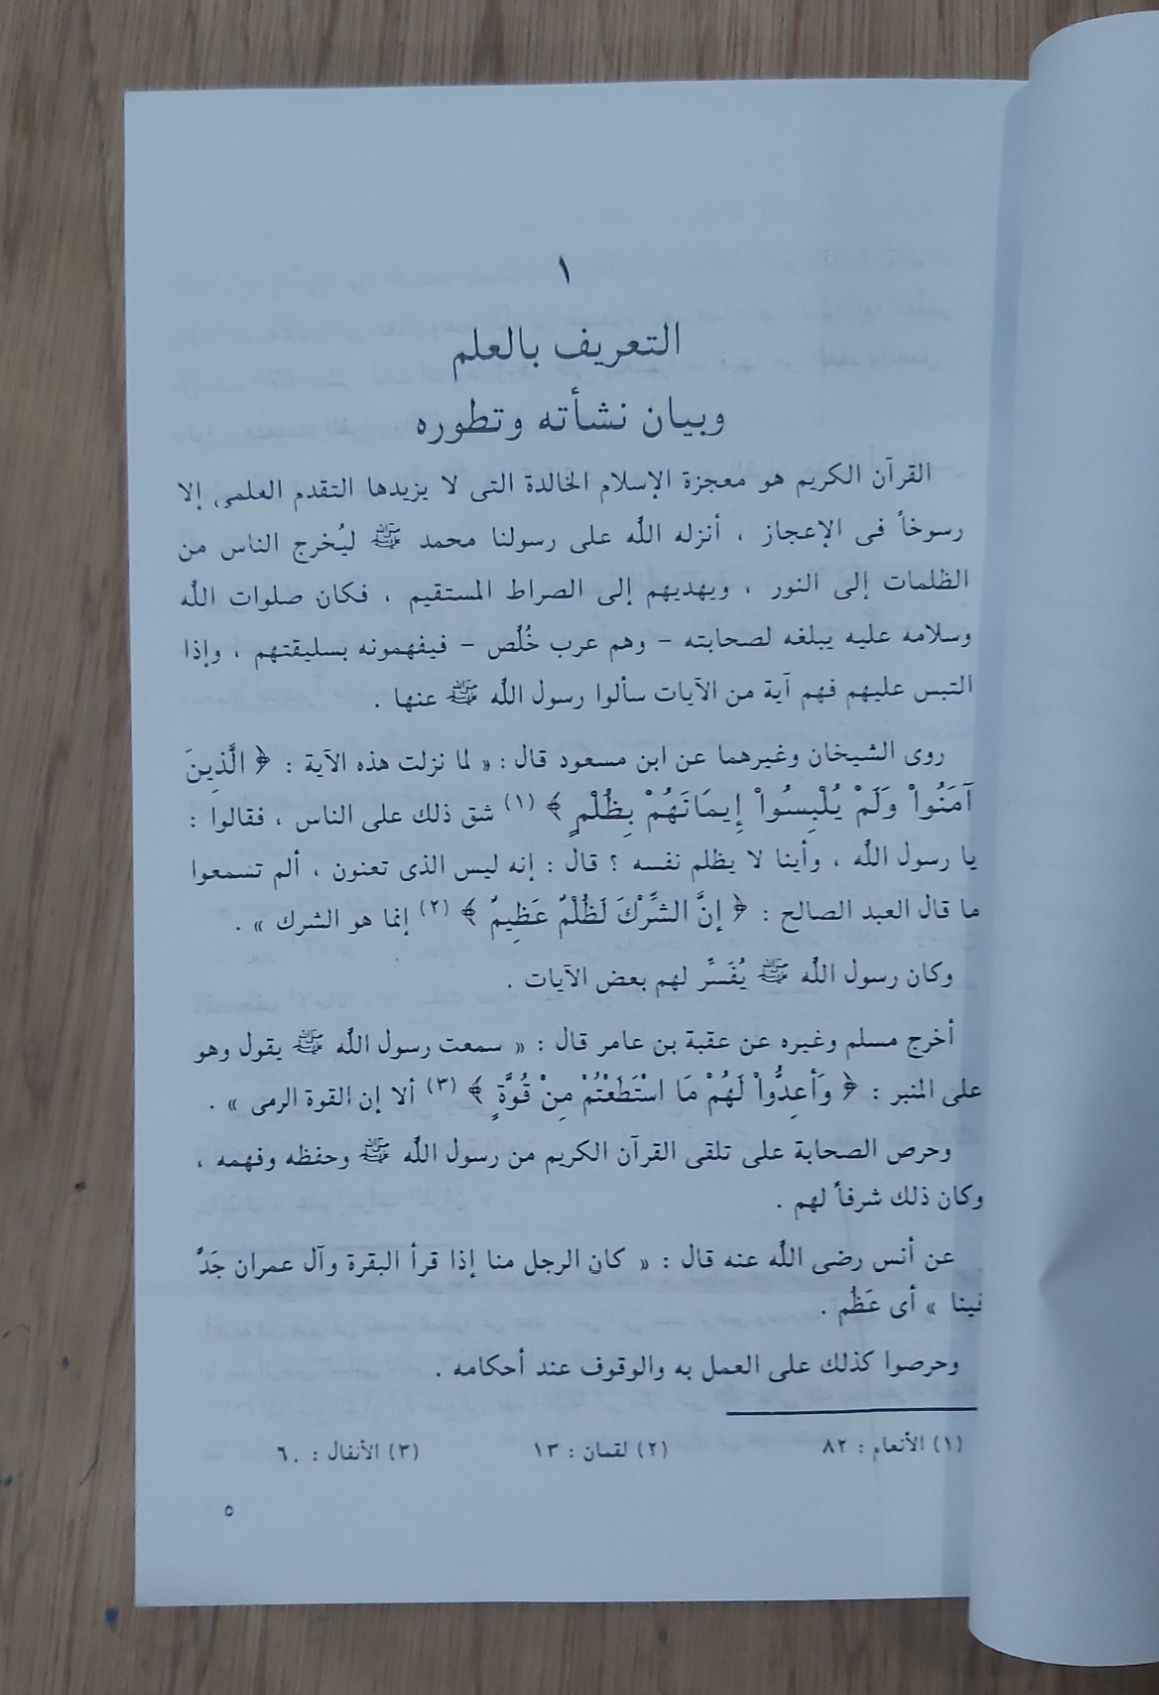 ١
التعريف بالعلم
وبيان نشأته وتطوره
القرآن الكريم هو معجزة الإسلام الخالدة التى لا يزيدها التقدم العلمى إلا
رسوخاً فى الإعجاز ، أنزله الله على رسولنا محمد ﷺ ليُخرج الناس من
الظلمات إلى النور ، ويهديهم إلى الصراط المستقيم ، فكان صلوات الله
وسلامه عليه يبلغه لصحابته – وهم عرب خُلَّص – فيفهمونه بسليقتهم ، وإذا
التبس عليهم فهم آية من الآيات سألوا رسول الله ﷺ عنها .
روى الشيخان وغيرهما عن ابن مسعود قال : « لما نزلت هذه الآية : ﴿ الَّذِينَ
آمَنُواْ وَلَمْ يُلْبِسُواْ إِيمَانَهُمْ بِظُلْمٍ ﴾ (١) شق ذلك على الناس ، فقالوا :
يا رسول الله ، وأينا لا يظلم نفسه ؟ قال : إنه ليس الذى تعنون ، ألم تسمعوا
ما قال العبد الصالح : ﴿ إنَّ الشِّرْكَ لَظُلْمٌ عَظِيمٌ ﴾ (٢) إنما هو الشرك » .
وكان رسول الله ﷺ يُفَسِّر لهم بعض الآيات .
أخرج مسلم وغيره عن عقبة بن عامر قال : « سمعت رسول الله ﷺ يقول وهو
على المنبر : ﴿ وَأَعِدُّواْ لَهُمْ مَا اسْتَطَعْتُمْ مِنْ قُوَّةٍ ﴾ (٣) ألا إن القوة الرمى » .
وحرص الصحابة على تلقى القرآن الكريم من رسول الله ﷺ وحفظه وفهمه ،
وكان ذلك شرفاً لهم .
عن أنس رضى الله عنه قال : « كان الرجل منا إذا قرأ البقرة وآل عمران جَدَّ
فينا » أى عَظُم .
وحرصوا كذلك على العمل به والوقوف عند أحكامه .
(١) الأنعام : ٨٢ (٢) لقمان : ١٣ (٣) الأنفال : ٦٠
٥